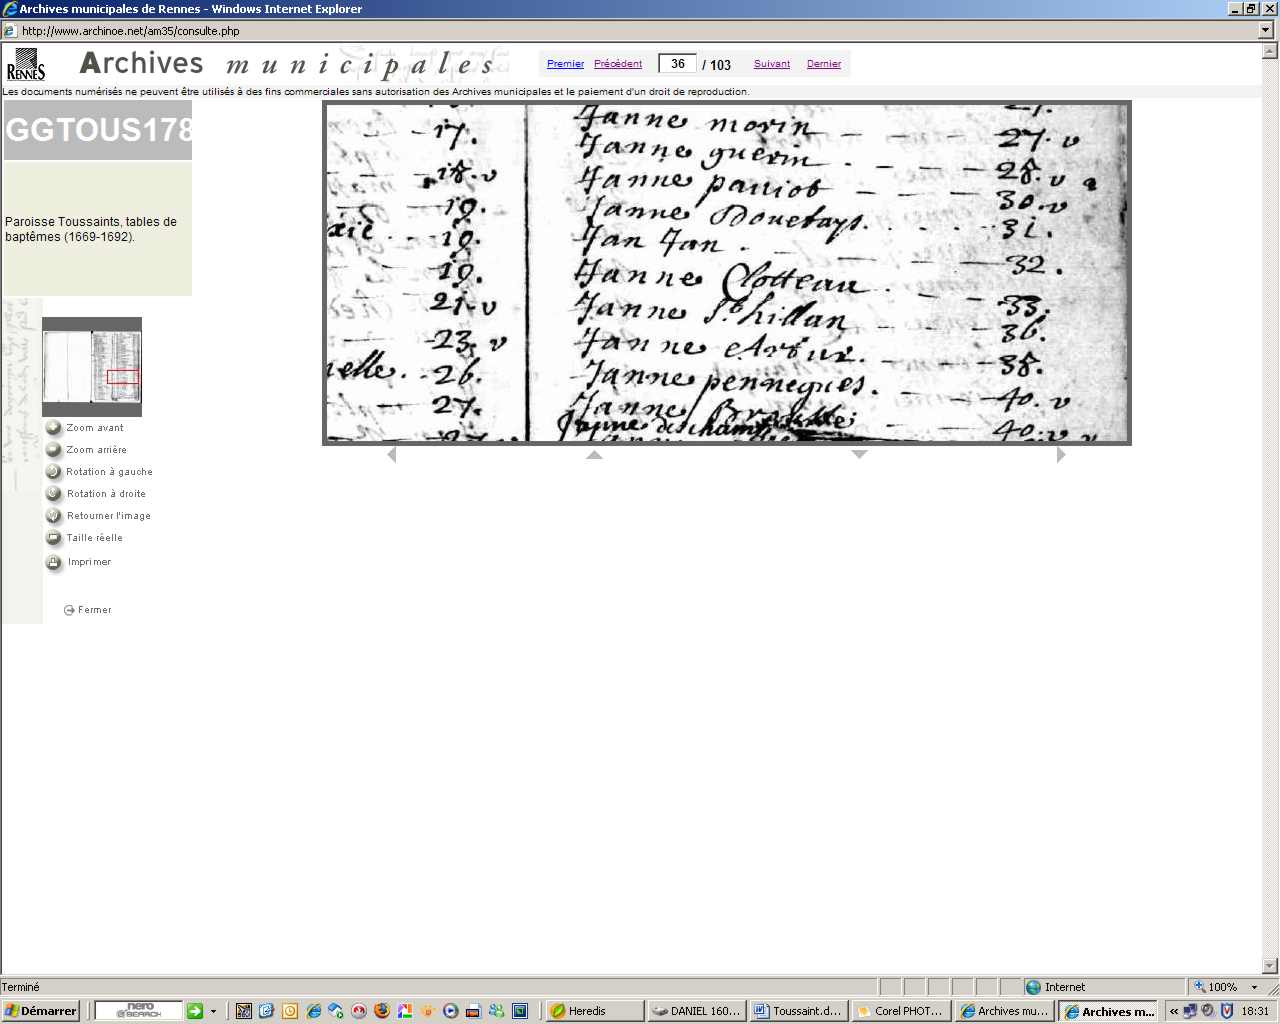 Archives municipales de Rennes - Windows Internet Explorer
http://www.archinoe.net/am35/consulte.php
RENNES
Archives municipales
Premier Précédent 36 / 103 Suivant Dernier
Les documents numérisés ne peuvent être utilisés à des fins commerciales sans autorisation des Archives municipales et le paiement d'un droit de reproduction.
GGTOUS178
Paroisse Toussaints, tables de
baptêmes (1669-1692).
Zoom avant
Zoom arrière
Rotation à gauche
Rotation à droite
Retourner l'image
Taille réelle
Imprimer
Fermer
17.
18. v
19.
19.
19.
21. v
23. v
elle. 26.
27.
Janne morin 27. v
Janne guerin 28. v
Janne paviot 30. v
Janne Douetays 31.
Jan Jan 32.
Janne Clotteau 33.
Janne St hillan 36.
Janne 38.
Janne pennegues. 40. v
Janne
Janne deschamps 40. v
Terminé
Internet
100%
Démarrer
nero
SEARCH
Heredis
DANIEL 160...
Toussaint.d...
Corel PHOT...
Archives mu...
Archives m...
18:31